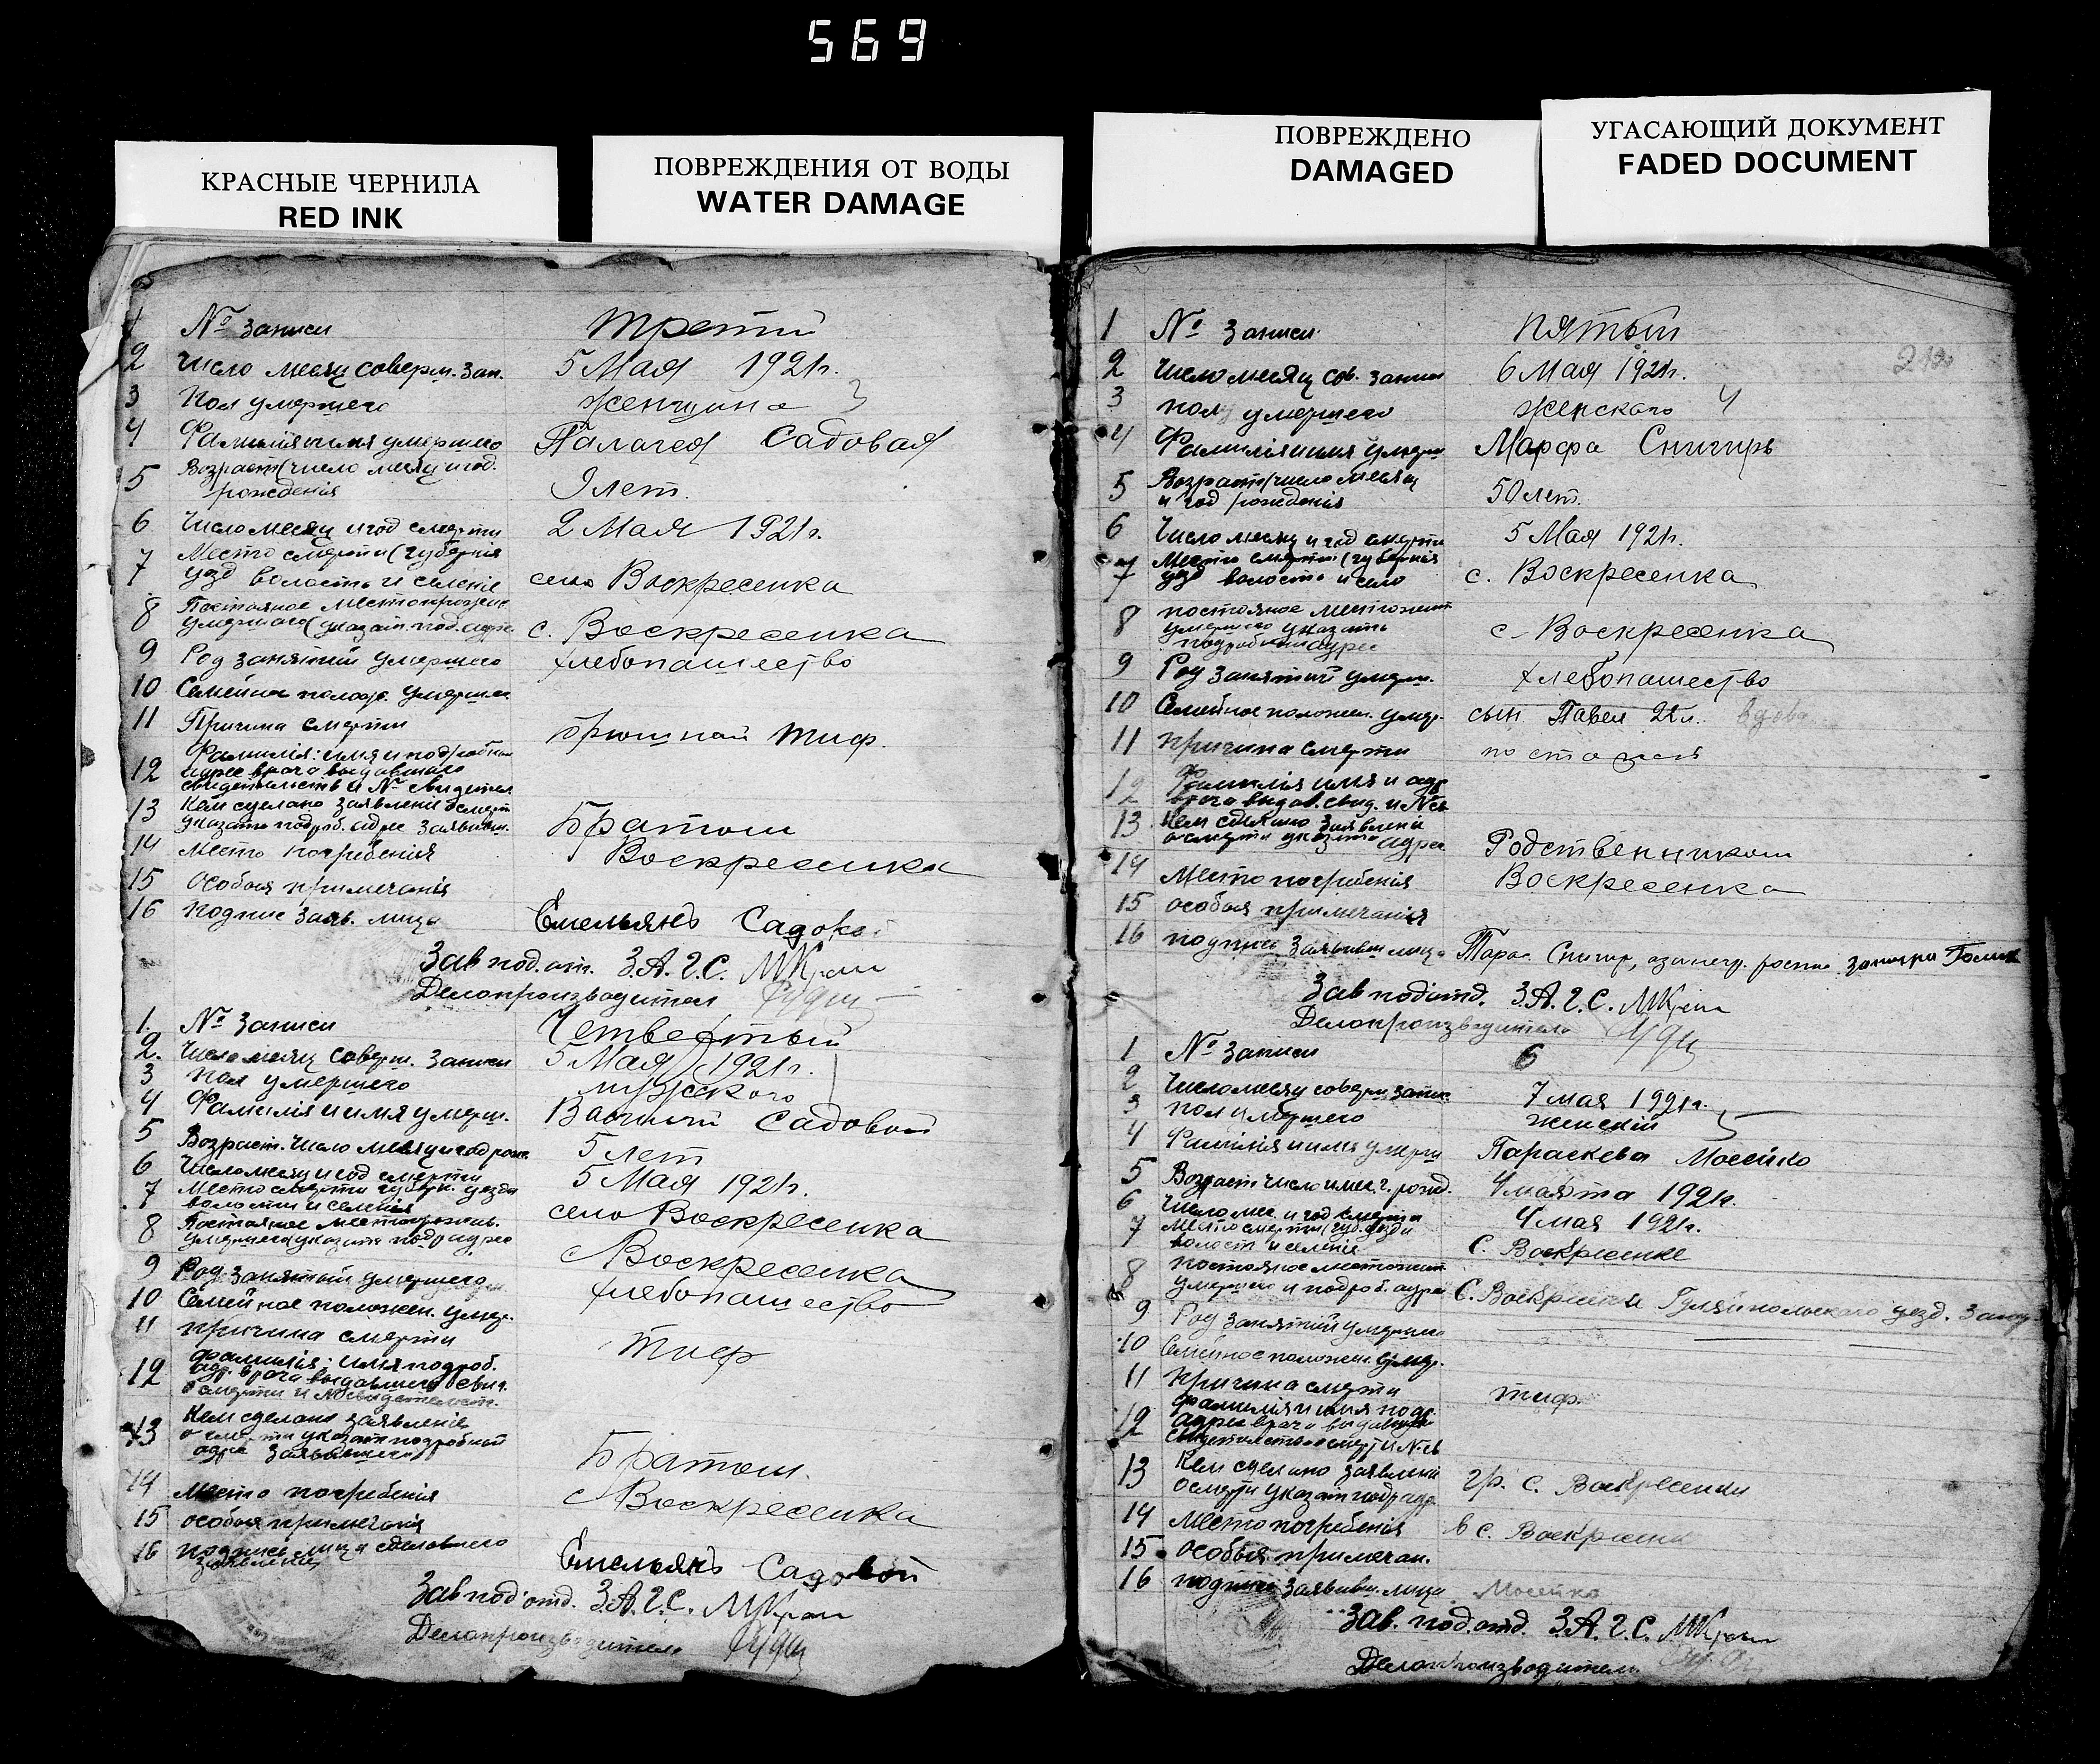 569
КРАСНЫЕ ЧЕРНИЛА
RED INK
ПОВРЕЖДЕНИЯ ОТ ВОДЫ
WATER DAMAGE
ПОВРЕЖДЕНО
DAMAGED
УГАСАЮЩИЙ ДОКУМЕНТ
FADED DOCUMENT
1 № записи третий
2 Число месяц соверш. зап. 5 Мая 1921 г.
3 Пол умершего женщина 3
4 Фамилія имя умершего Палагея Садовая
5 Возраст (число месяц и год.
рожденія 9 лет.
6 Число месяц и год смерти 2 Мая 1921 г.
7 Место смерти (губернія
уезд волость и селеніе село Воскресенка
8 Постоянное
умершаго (указат. под. адре с. Воскресенка
9 Род занятий умершего хлебопашество
10 Семейно полож. умерш.
11 Причина смерти брюшной тиф.
12 Фамилія: имя и подробный
адрес врача выдавшаго
свидетельств и № свидетел
13 Кем сделано заявленіе о смерт
указать подроб. адре заявивш. Братом
14 Место погребенія Воскресенка
15 особыя примечанія
16 подпис заяв. лица Емельянъ Садово
Зав под. от. З.А.Г.С.
Делопроизводител
1. № записи Четвертый
2. Число месяц соверш. записи 5 Мая 1921 г.
3 пол умершего мужского
4 Фамилія и имя умерш. Садовой
5 Возраст. число месяц и год рож. 5 лет
6 Число месяц и год смерти 5 Мая 1921 г.
7 Место смерти губерн. уезда
волости и селенія село Воскресенка
8 Постоянное
умершего указат подр адрес с Воскресенка
9 Род занятий умершего хлебопашество
10 Семейное положен. умер.
11 причина смерти тиф
12 фамилія: имя подроб.
адр. врача выдавшего свид.
о смерти и № свидетельст.
13 Кем сделано заявленіе
о смерти указат подробный
адре заявившего Братом.
14 место погребенія с Воскресенка
15 особыя примечанія
16 подпись лица сделавшего
заявленіе Емельянъ Садовой
Зав под отд. З.А.Г.С.
Делопроизводитель
1 № записи пятый
2 Число месяц сов. записи 6 Мая 1921 г.
3 пол умершего женского 4
4 Фамилія имя умерш Марфа Снигирь
5 Возраст (число месяц
и год рожденія 50 лет.
6 Число месяц и год смерти 5 Мая 1921 г.
7 Место смерти (губернія
уезд волость и село с. Воскресенка
8 постоянное
умершего указать
подробный адрес с. Воскресенка
9 Род занятий умерш. хлебопашество
10 Семейное положен. умер. сын Павел 22 л. вдова
11 причина смерти
12 Фамилія имя и адр
врача выдав. свид. и №
13 Кем сделано заявлені
о смерти указать адрес Родственником
14 Место погребенія Воскресенка
15 особыя примечанія
16 подпись заявивш лица Тарас
Зав под отд. З.А.Г.С.
Делопроизводитель
1 № записи 6
2 Число месяц соверш запис. 7 мая 1921 г.
3 пол умершего женский
4 Фамилія и имя умерш Параскева Мосейко
5 Возраст число и мес. г. рожд. 1921 г.
6 Число мес. и год смерти 4 мая 1921 г.
7 Место смерти (губ. уезда
волост и селеніе С. Воскресенке
8 постоянное
умершего и подроб. адрес С. Воскресенки Гуляйпольского уезд. Запор.
9 Род занятий умерш
10 Семейное положен. умер.
11 Причина смерти тиф.
12 фамилія и имя подр.
адрес врача выдавш
13 Кем сделано заявлені
о смерти указат подр адр. гр. с. Воскресенки
14 Место погребенія в с. Воскресенк
15 особыя примечан.
16 подпись заявивш. лица Мосейко
Зав. под. отд. З.А.Г.С.
Делопроизводитель